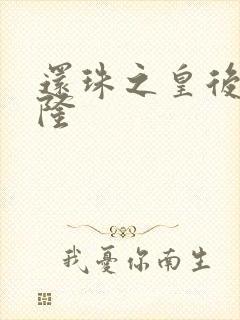 還珠之皇後
隆
我憂你南生